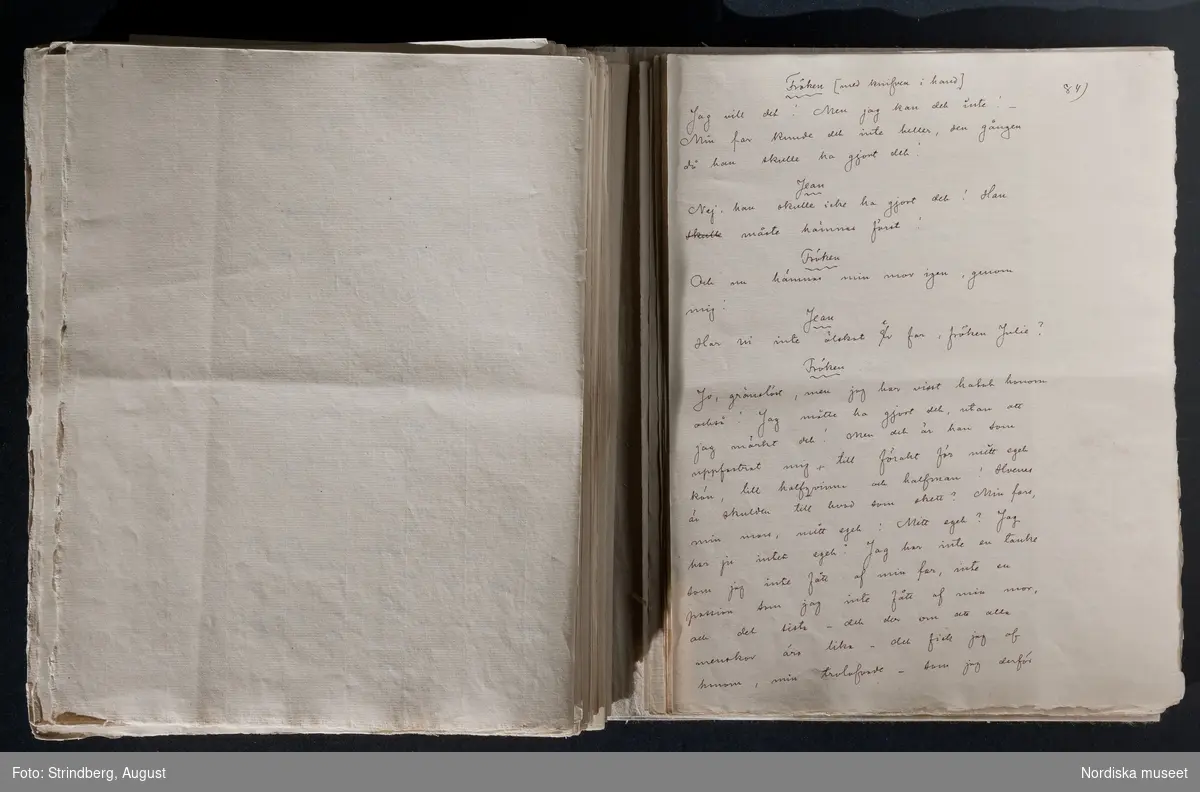 Fröken [med knifven i hand]
84)
Jag vill det! Men jag kan det inte! –
Min far kunde det inte heller, den gången
då han skulle ha gjort det!
Jean
Nej, han skulle icke ha gjort det! Han
skulle måste hämnas först!
Fröken
Och nu hämnas min mor igen, genom
mig!
Jean
Har ni inte älskat Er far, fröken Julie?
Fröken
Jo, gränslöst, men jag har visst hatat honom
också! Jag måtte ha gjort det, utan att
jag märkt det! Men det är han som
uppfostrat mig till förakt för mitt eget
kön, till halfqvinna och halfman! Hvems
är skulden till hvad som skett? Min fars,
min mors, mitt eget! Mitt eget? Jag
har ju intet eget? Jag har inte en tanke
som jag inte fått af min far, inte en
passion som jag inte fått af min mor,
och det sista – det der om att alla
menskor äro lika – det fick jag af
honom, min trolofvade – som jag derför
Foto: Strindberg, August
Nordiska museet